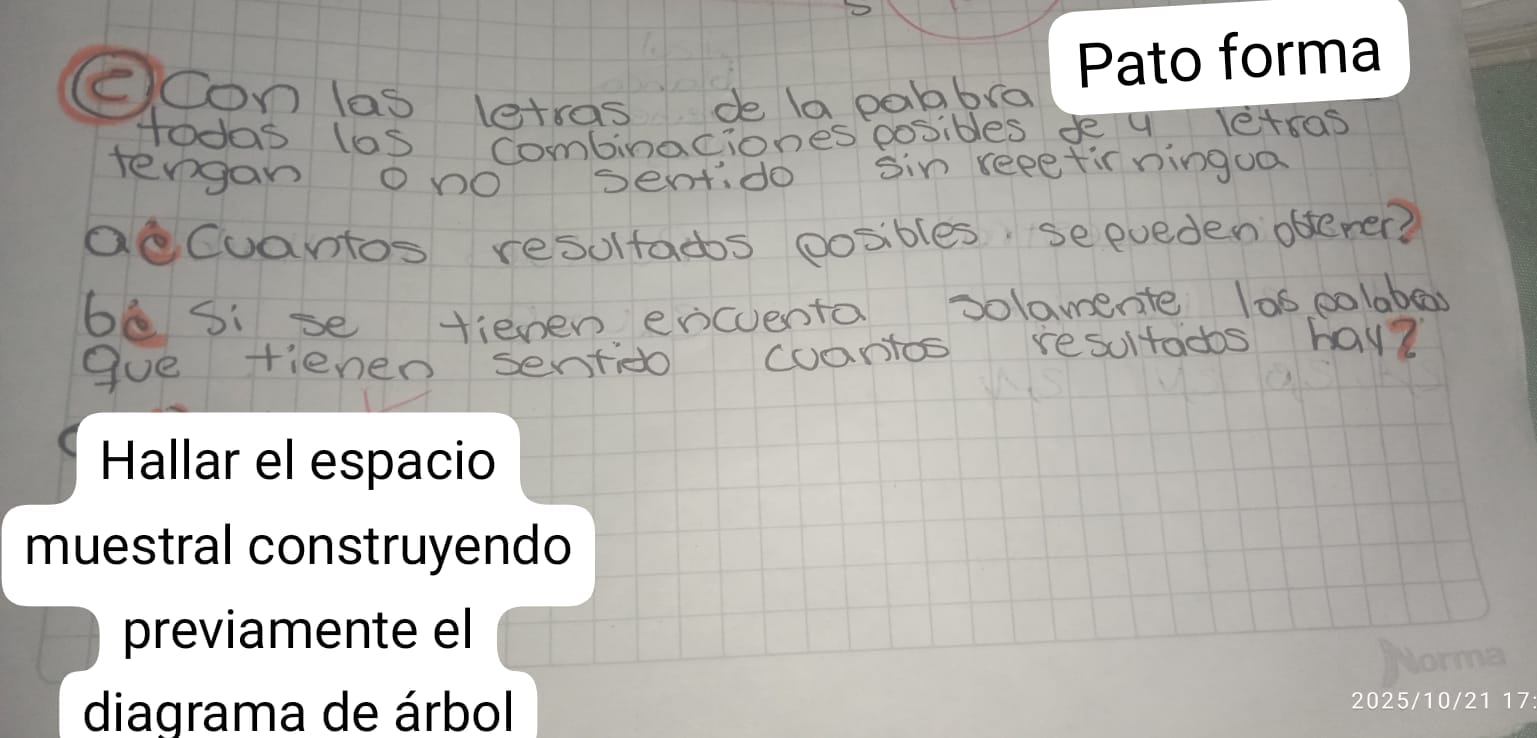 Pato forma
c Con las letras de la palabra
todas las combinaciones posibles de 4 letras
tengan o no sentido sin repetir ningua
a ¿Cuantos resultados posibles se pueden obtener?
b ¿ Si se tienen encuenta solamente las palabras
que tienen sentido cuantos resultados hay?
Hallar el espacio
muestral construyendo
previamente el
diagrama de árbol
Norma
2025/10/21 17: